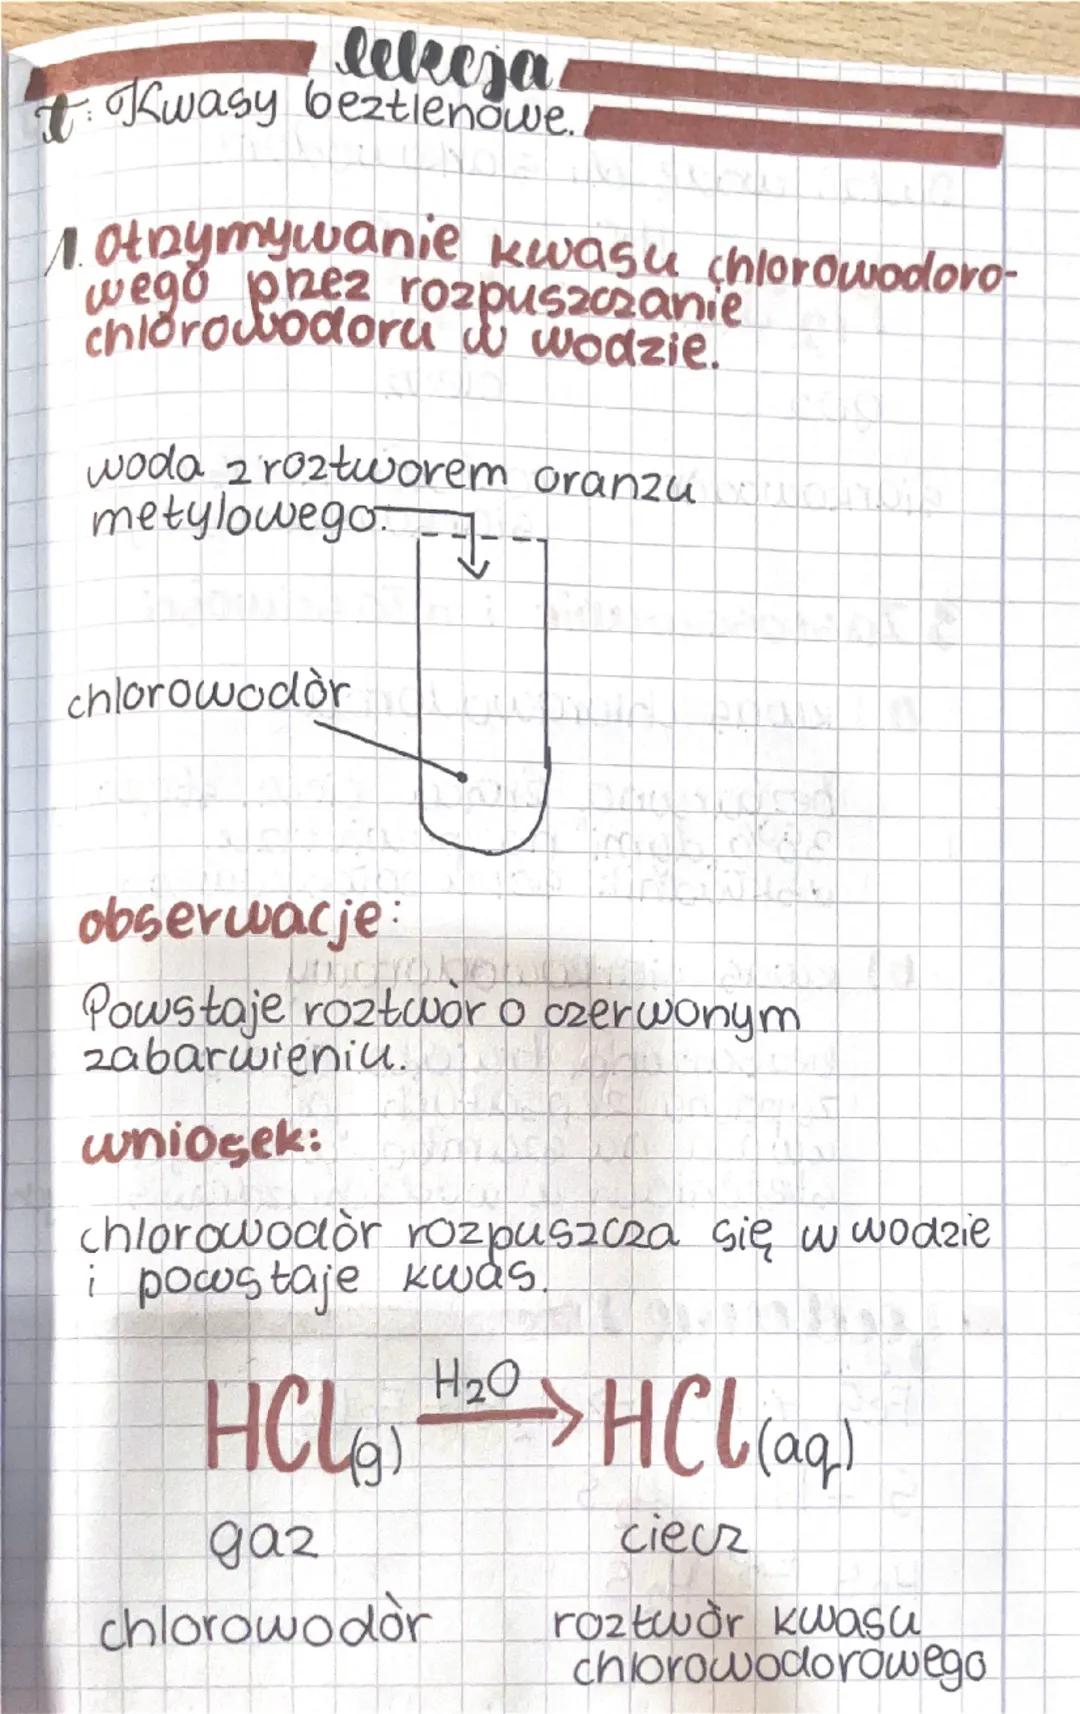 lekcja
t: Kwasy beztlenowe.
1. Otrzymywanie kwasu chlorowodoro-
wego przez rozpuszczanie
chlorowodoru w wodzie.
woda z roztworem oranżu
metylowego.
chlorowodòr
obserwacje:
Powstaje roztwòr o czerwonym
zabarwieniu.
wniosek:
chlorowodòr rozpuszcza się w wodzie
i powstaje kwas.
HCl(g) H₂O → HCl(aq)
gaz ciecz
chlorowodòr roztwòr kwasu
chlorowodorowego